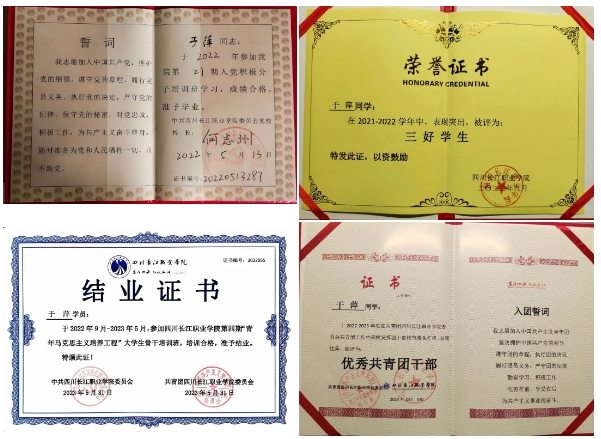 誓词
我志愿加入中国共产党，拥护
党的纲领，遵守党的章程，履行党
员义务，执行党的决定，严守党的
纪律，保守党的秘密，对党忠诚，
积极工作，为共产主义奋斗终身，
随时准备为党和人民牺牲一切，永
不叛党。
于萍同志：
于2022年参加我
院第21期入党积极分
子培训班学习，成绩合格，
准予毕业。
中共四川长江职业学院委员会党校
校长：
2022年5月13日
证书编号：20220513287
荣誉证书
HONORARY CREDENTIAL
于萍同学：
在2021-2022学年中，表现突出，被评为：
三好学生
特发此证，以资鼓励
四川长江职业学院
四川长江职业学院
证书编号：2023055
结业证书
于萍学员：
于2022年9月-2023年5月，参加四川长江职业学院第四期“青
年马克思主义培养工程”大学生骨干培训班，培训合格，准予结业。
特颁此证！
中共四川长江职业学院委员会
共青团四川长江职业学院委员会
2023年5月31日
2023年5月31日
证书
于萍同学：
优秀共青团干部
四川长江职业学院
入团誓词
我志愿加入中国共产主义青年团
坚决拥护中国共产党的领导
遵守团的章程，执行团的决议
履行团员义务，严守团的纪律
勤奋学习，积极工作
吃苦在前，享受在后
为共产主义事业而奋斗。